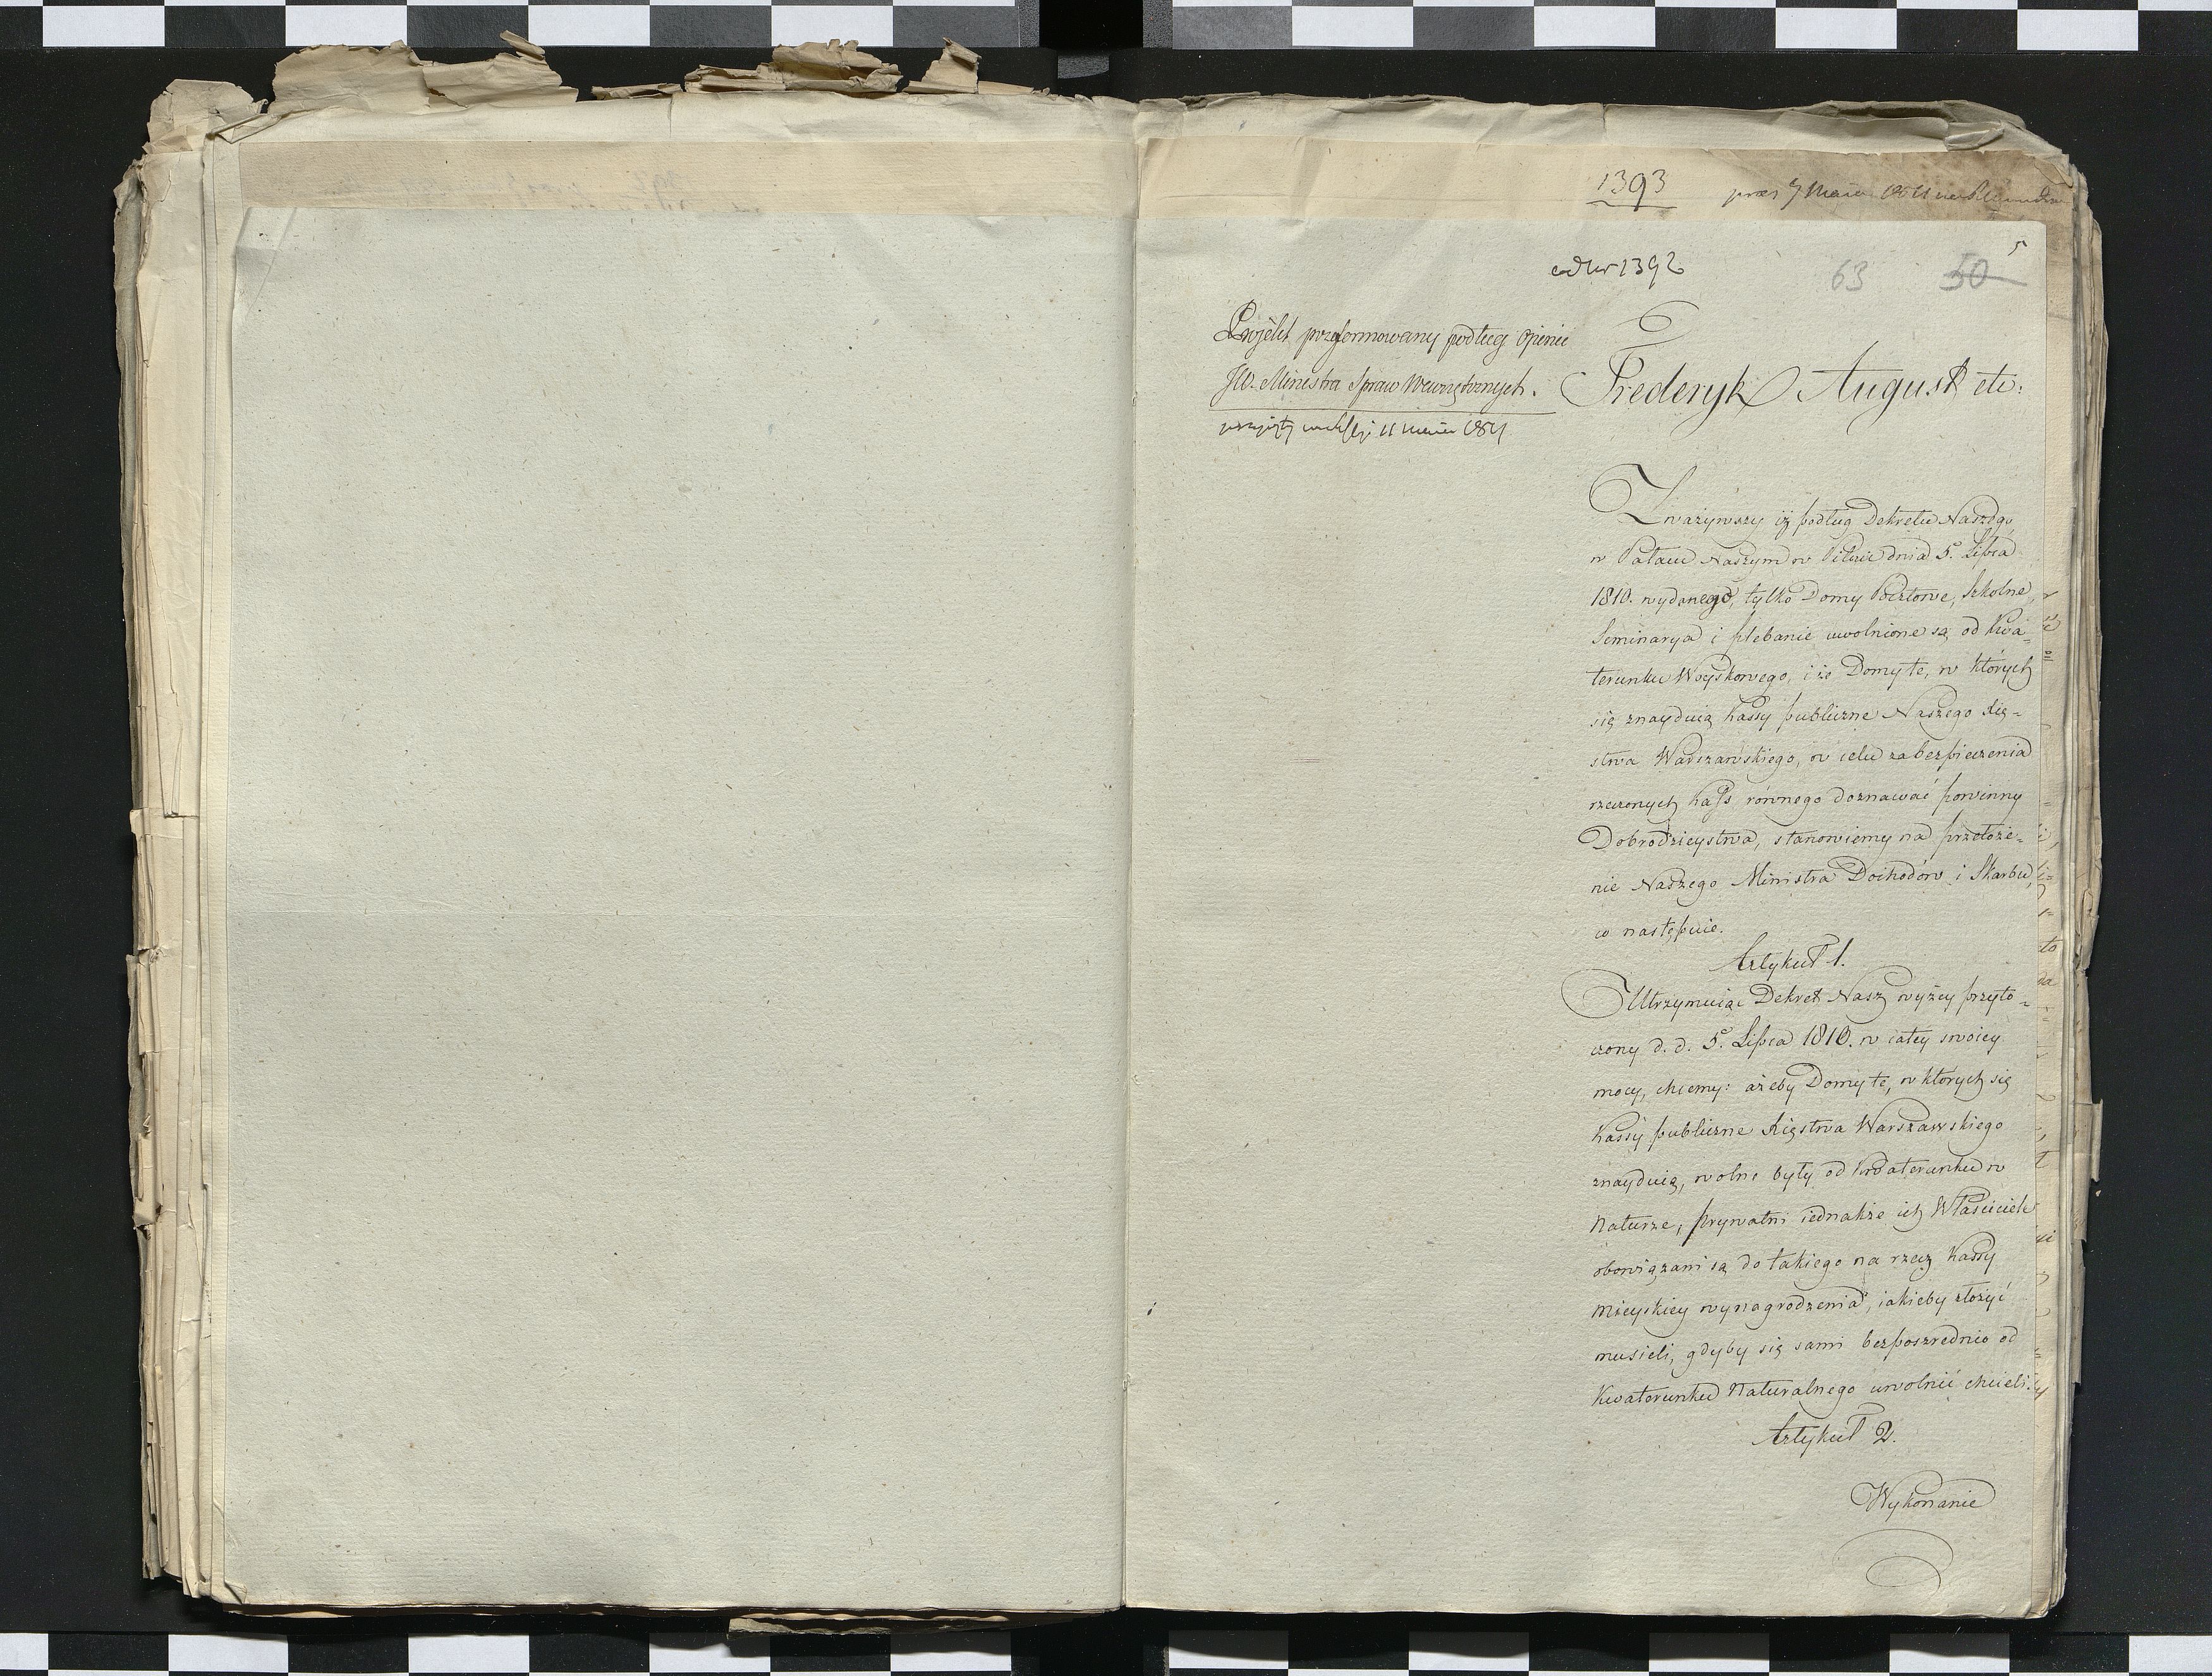 1393
5
ad Nr 1392
63 50
Projekt przeformowany podług Opinii
JW. Ministra Spraw Wewnętrznych.
przyięty na Sessji 11 maia 1811
Frederyk August etc:
Zważywszy iż podług Dekretu Naszego
w Pałacu Naszym w Pilnic dnia 5º Lipca
1810. wydanego, tylko Domy Pocztowe, Szkolne,
Seminarya i plebanie uwolnione są od Kwa=
terunku Woyskowego, i że Domy te, w których
się znayduią Kassy publiczne Naszego Xię=
stwa Warszawskiego, w celu zabezpieczenia
rzeczonych Kass, równego doznawać powinny
Dobrodzieystwa, stanowiemy na przełoże=
nie Naszego Ministra Dochodów i Skarbu,
co następuie.
Artykuł 1.
Utrzymuiąc Dekret Nasz wyżey przyto=
czony d. d. 5º Lipca 1810. w całey swoiey
mocy, chcemy: ażeby Domy te, w których się
Kassy publiczne Xięstwa Warszawskiego
znayduią, wolne były od Kwaterunku w
Naturze, prywatni iednakże ich Właściciele
obowiązani są do takiego na rzecz Kassy
Mieyskiey wynagrodzenia, iakieby złożyć
musieli, gdyby się sami bezpośrednio od
Kwaterunku Naturalnego uwolnić chcieli.
Artykuł 2.
Wykonanie